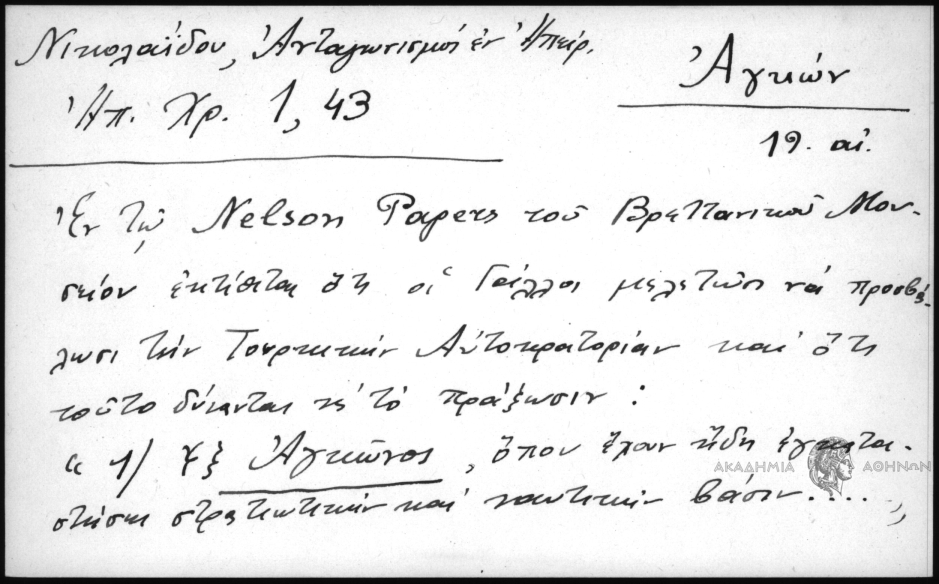 Νικολαΐδου, Ἀνταγωνισμοί ἐν Ἠπείρ.
Ἠπ. Χρ. 1, 43
Ἀγκών
19. αἰ.
Ἐν τῷ Nelson Papers τοῦ Βρεττανικοῦ Μου-
σείου ἐκτίθεται ὅτι οἱ Γάλλοι μελετῶσι νά προσβά-
λωσι τήν Τουρκικήν Αὐτοκρατορίαν καί ὅτι
τοῦτο δύνανται νά τό πράξωσιν :
« 1) ἐξ Ἀγκῶνος, ὅπου ἔχουν ἤδη ἐγκατα-
στήσει στρατιωτικήν καί ναυτικήν βάσιν.... »
ΑΚΑΔΗΜΙΑ ΑΘΗΝΩΝ